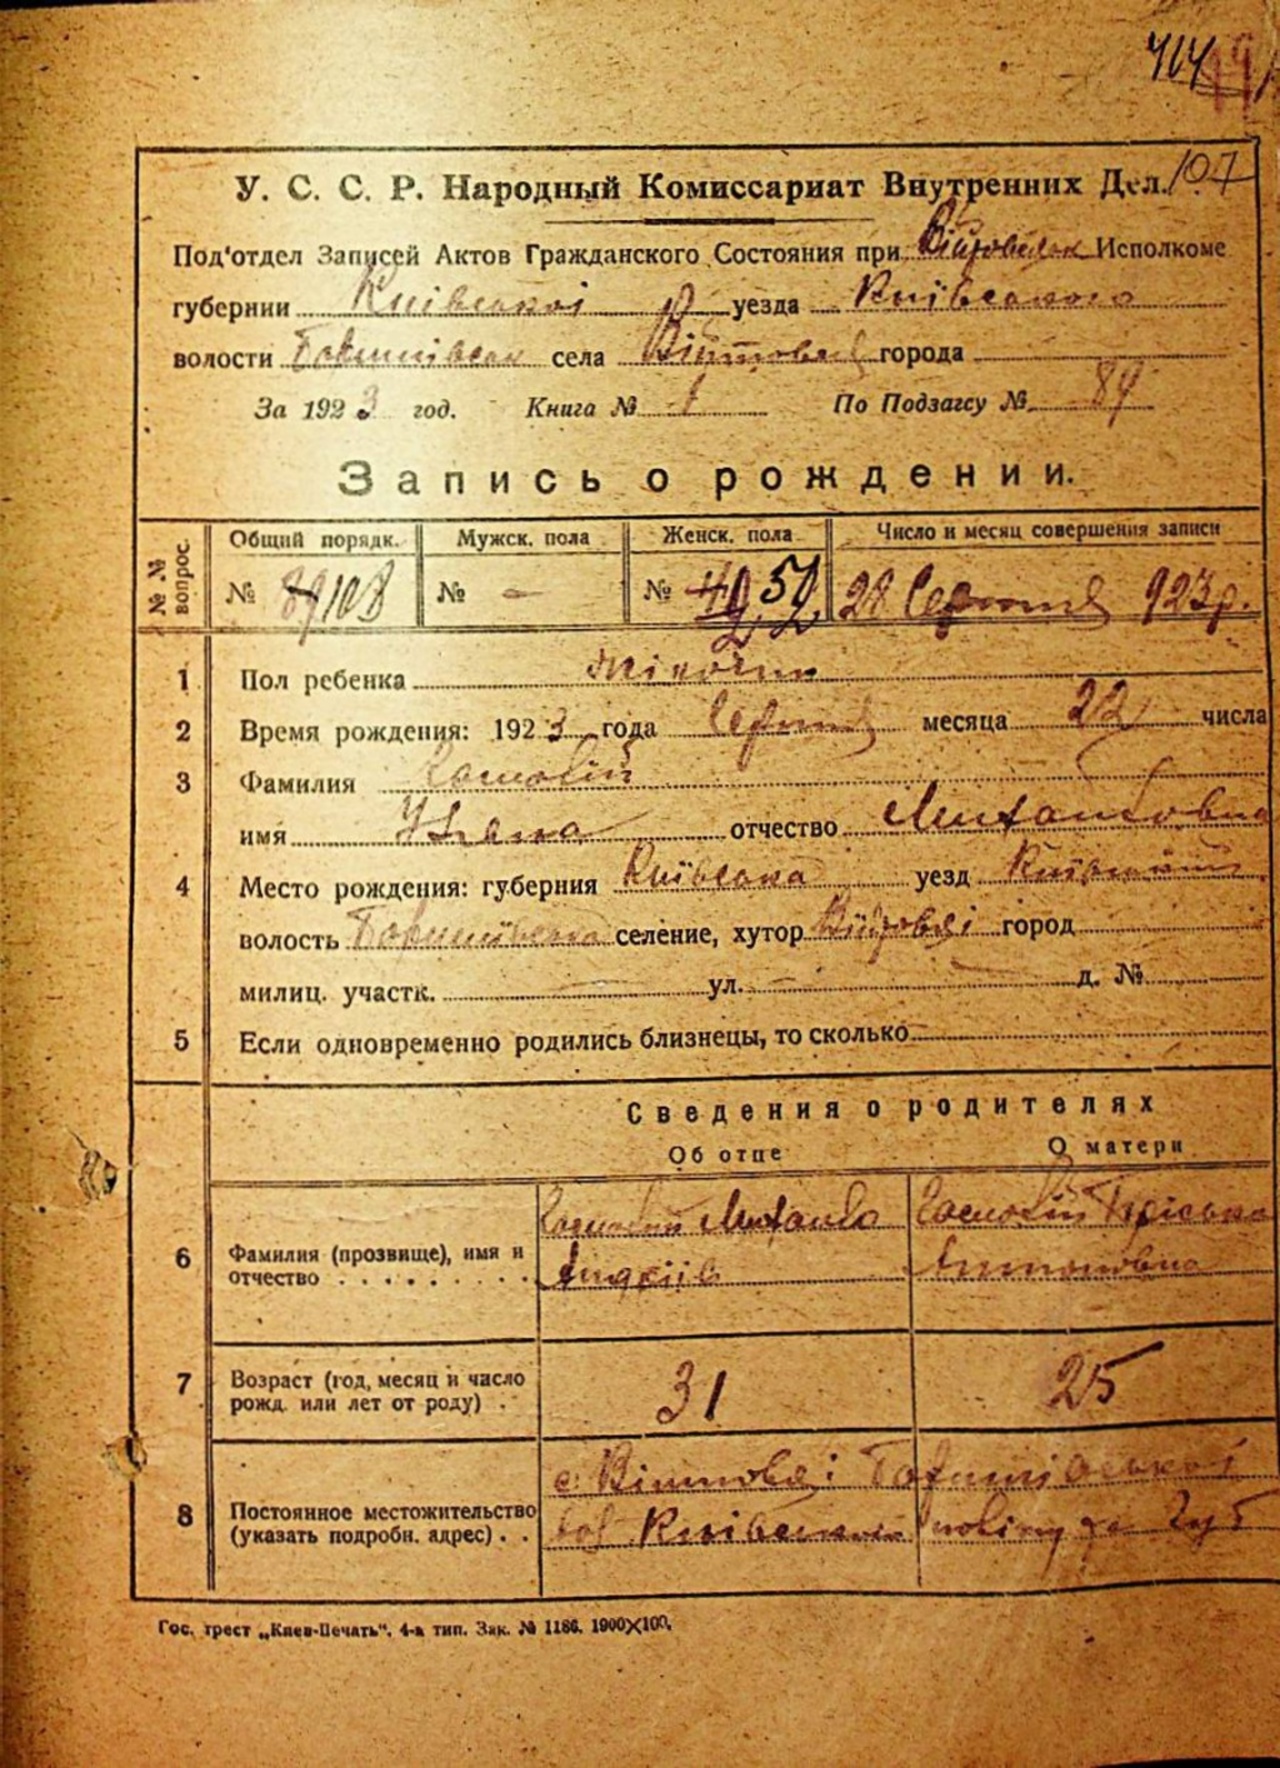 414
107
У. С. С. Р. Народный Комиссариат Внутренних Дел.
Под'отдел Записей Актов Гражданского Состояния при Исполкоме
губернии Київської уезда Київського
волости села города
За 1923 год. Книга № 1 По Подзагсу № 89
Запись о рождении.
№ № вопрос. Общий порядк. Мужск. пола Женск. пола Число и месяц совершения записи
№ 89 108 № — № 52 28 Серпня 923 р.
1 Пол ребенка жіночий
2 Время рождения: 1923 года Серпня месяца 22 числа
3 Фамилия
имя Уляна отчество Михайловна
4 Место рождения: губерния Київська уезд Київський
волость селение, хутор город
милиц. участк. ул. д. №
5 Если одновременно родились близнецы, то сколько
Сведения о родителях
Об отце О матери
6 Фамилия (прозвище), имя и отчество Михайло Андріїв Пріська Антоновна
7 Возраст (год, месяц и число рожд. или лет от роду) 31 25
8 Постоянное местожительство (указать подробн. адрес) с.
вол Київський повіту та Губ
Гос. трест „Киев-Печать“. 4-я тип. Зак. № 1186. 1900X100.